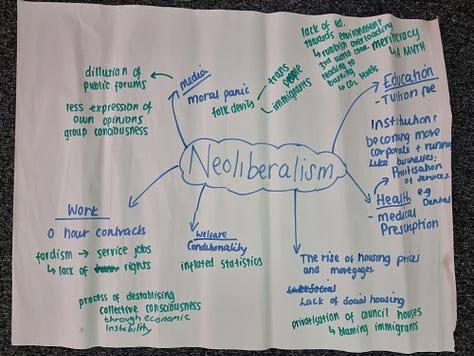 dillution of
public forums
less expression of
own opinions
group conciousness
media
moral panic
folk devils
trans
people
immigrants
lack of ed.
towards environment
↳ rubbish overloading
3rd world
leading to
bunning
↳ levels
meritocracy
↳ A MYTH
Education
- Tuition fee
Institutions
becoming more
corporate + running
like businesses.
Privitisation
of services.
Health e.g
Dental
- medical
Prescription
Neoliberalism
Work
0 hour contracts
fordism → service jobs
↳ lack of rights
process of destablising
collective consciousness
through economic
instability
Welfare
Conditionality
inflated statistics
The rise of housing prices
and mortgages.
Lack of Social housing
privatisation of council houses
↳ blaming immigrants